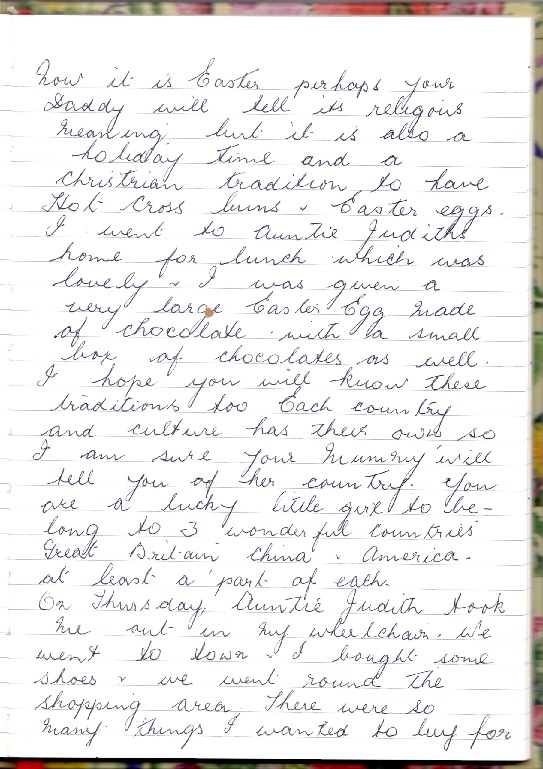 Now it is Easter perhaps your
Daddy will tell its religous
meaning but it is also a
holiday time and a
Christrian tradition to have
Hot Cross buns & Easter eggs.
I went to Auntie Judiths
home for lunch which was
lovely & I was given a
very large Easter Egg made
of chocolate with a small
box of chocolates as well.
I hope you will know these
traditions too Each country
and culture has their own so
I am sure your Mummy will
tell you of her country. You
are a lucky little girl to be-
long to 3 wonderful countries
Great Britain China & America.
at least a part of each.
On Thursday, Auntie Judith took
me out in my wheelchair. We
went to town & I bought some
shoes & we went round the
shopping area. There were so
many things I wanted to buy for